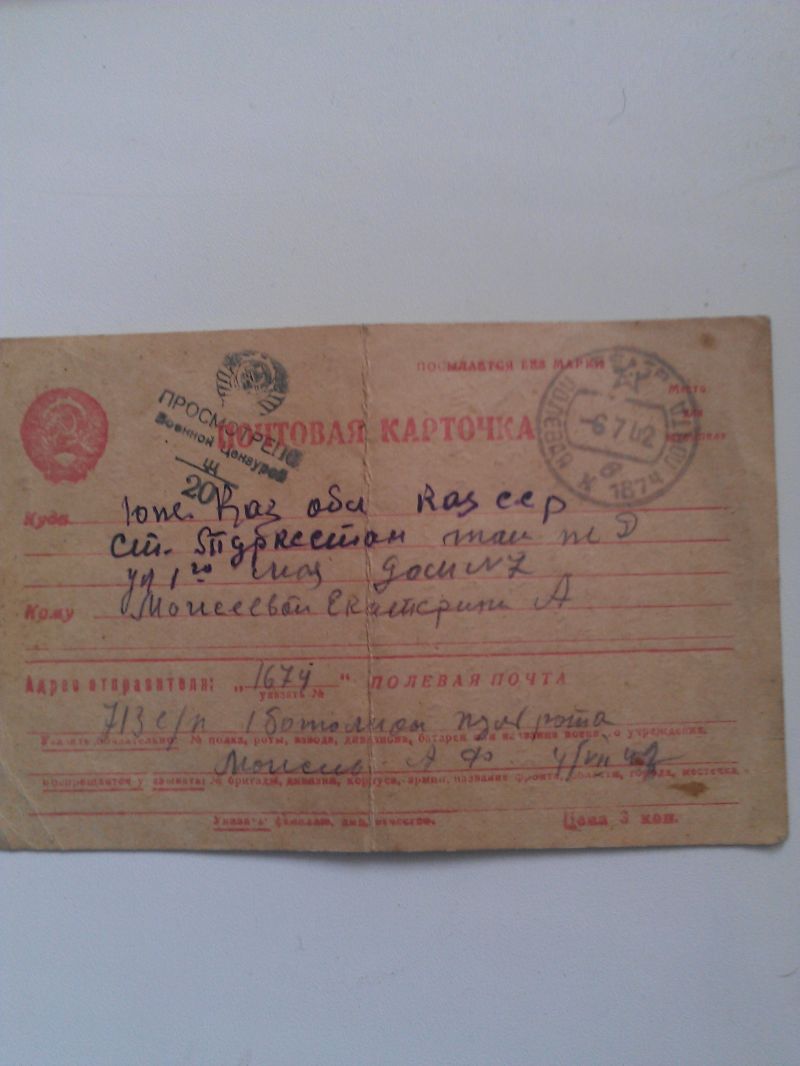 ПОСЫЛАЕТСЯ БЕЗ МАРКИ
Место
для
ПРОСМОТРЕНО
Военной Цензурой
20
ПОЧТОВАЯ КАРТОЧКА
-6 7 42
1674
Куда Юж. Каз обл Каз сср
ст. Туркестан таш ж Д
ул 1го мая дом №
Кому Моисеевой Екатерине А
Адрес отправителя: „1674“ ПОЛЕВАЯ ПОЧТА
указать №
713 с/п 1 батальон пул рота
Указать обязательно: № полка, роты, взвода, дивизиона, батареи или название военного учреждения.
А Ф 4/VII 42
Воспрещается указывать: № бригады, дивизии, корпуса, армии, название фронта, области, города, местечка.
Указать фамилию, имя, отчество.
Цена 3 коп.